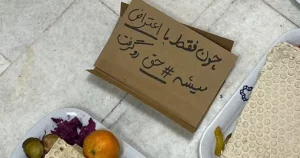 چون فقط با اعتراض
میشه # حق رو گرفت